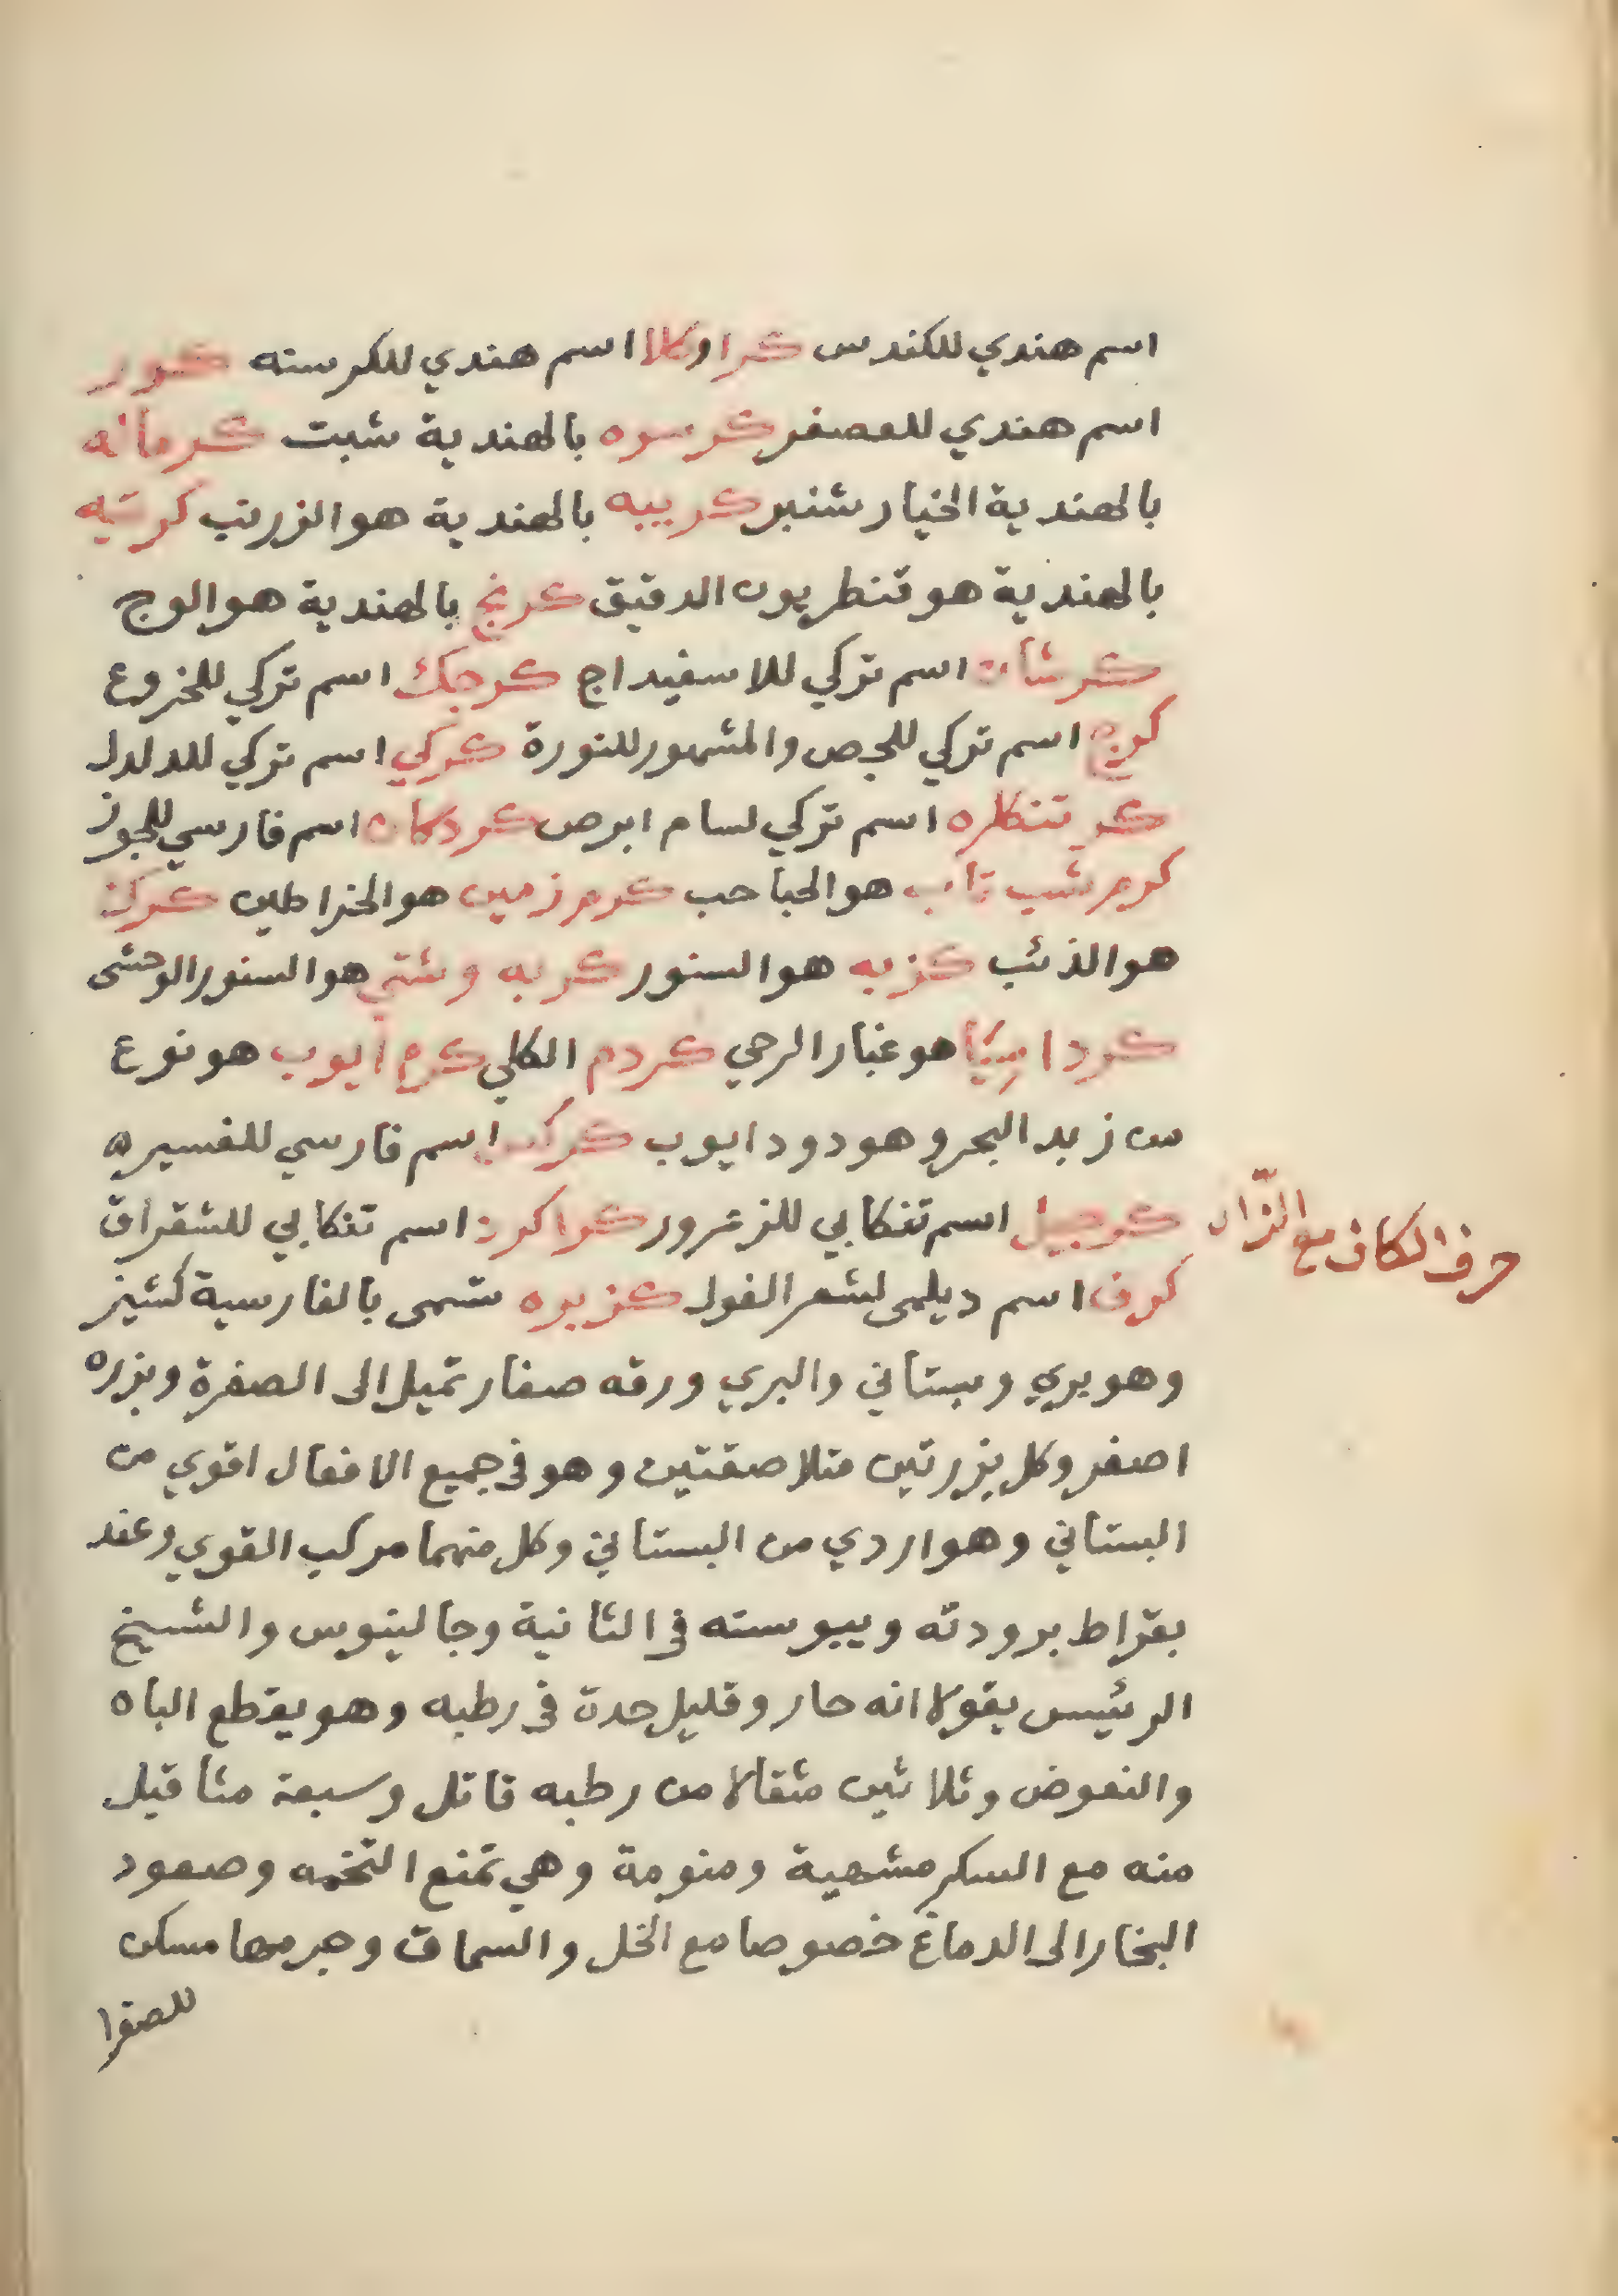 اسم هندي للكندس كرا وكلا اسم هندي للكرسنه كور
اسم هندي للعصفر كرسوه بالهندية شبت كرمانه
بالهندية الخيار شنبر كربيبه بالهندية هو الزرنب كرتيه
بالهندية هو قنطريون الدقيق كرنج بالهندية هو الوج
كرشان اسم تركي للاسفيداج كرجك اسم تركي للخروع
كرج اسم تركي للجص والمشهور للنورة كركي اسم تركي للدلدل
كر تنكلره اسم تركي لسام ابرص كردكان اسم فارسي للجوز
كرم شب تاب هو الحباحب كرم زمين هو الخراطين كرك
هو الذئب كزبه هو السنور كربه وشتي هو السنور الوحشى
كرد اسيا هو غبار الرحي كردم الكلي كرم ايوب هو نوع
من زبد البحر وهو دود ايوب كركس اسم فارسي للفسيره
كرجيل اسم تنكابي للزعرور كراكرد اسم تنكابي للشقراق
حرف الكاف مع الزاء
كرف اسم ديلمى لشعر الغول كزبره تسمى بالفارسية كشيز
وهو بري وبستاني والبري ورقه صغار تميل الى الصفرة وبزره
اصفر وكل بزرتين متلاصقتين وهو في جميع الافعال اقوي من
البستاني وهو اردي من البستاني وكل منهما مركب القوي وعند
بقراط برودته ويبوسته في الثانية وجالينوس والشيخ
الرئيس يقولا انه حار وقليل حدة في رطبه وهو يقطع الباه
والنعوض وثلاثين مثقالا من رطبه قاتل وسبعة مثاقيل
منه مع السكر مشهية ومنومة وهي تمنع التخمه وصعود
البخار الى الدماغ خصوصا مع الخل والسماق وجرمها مسكن
للصفرا